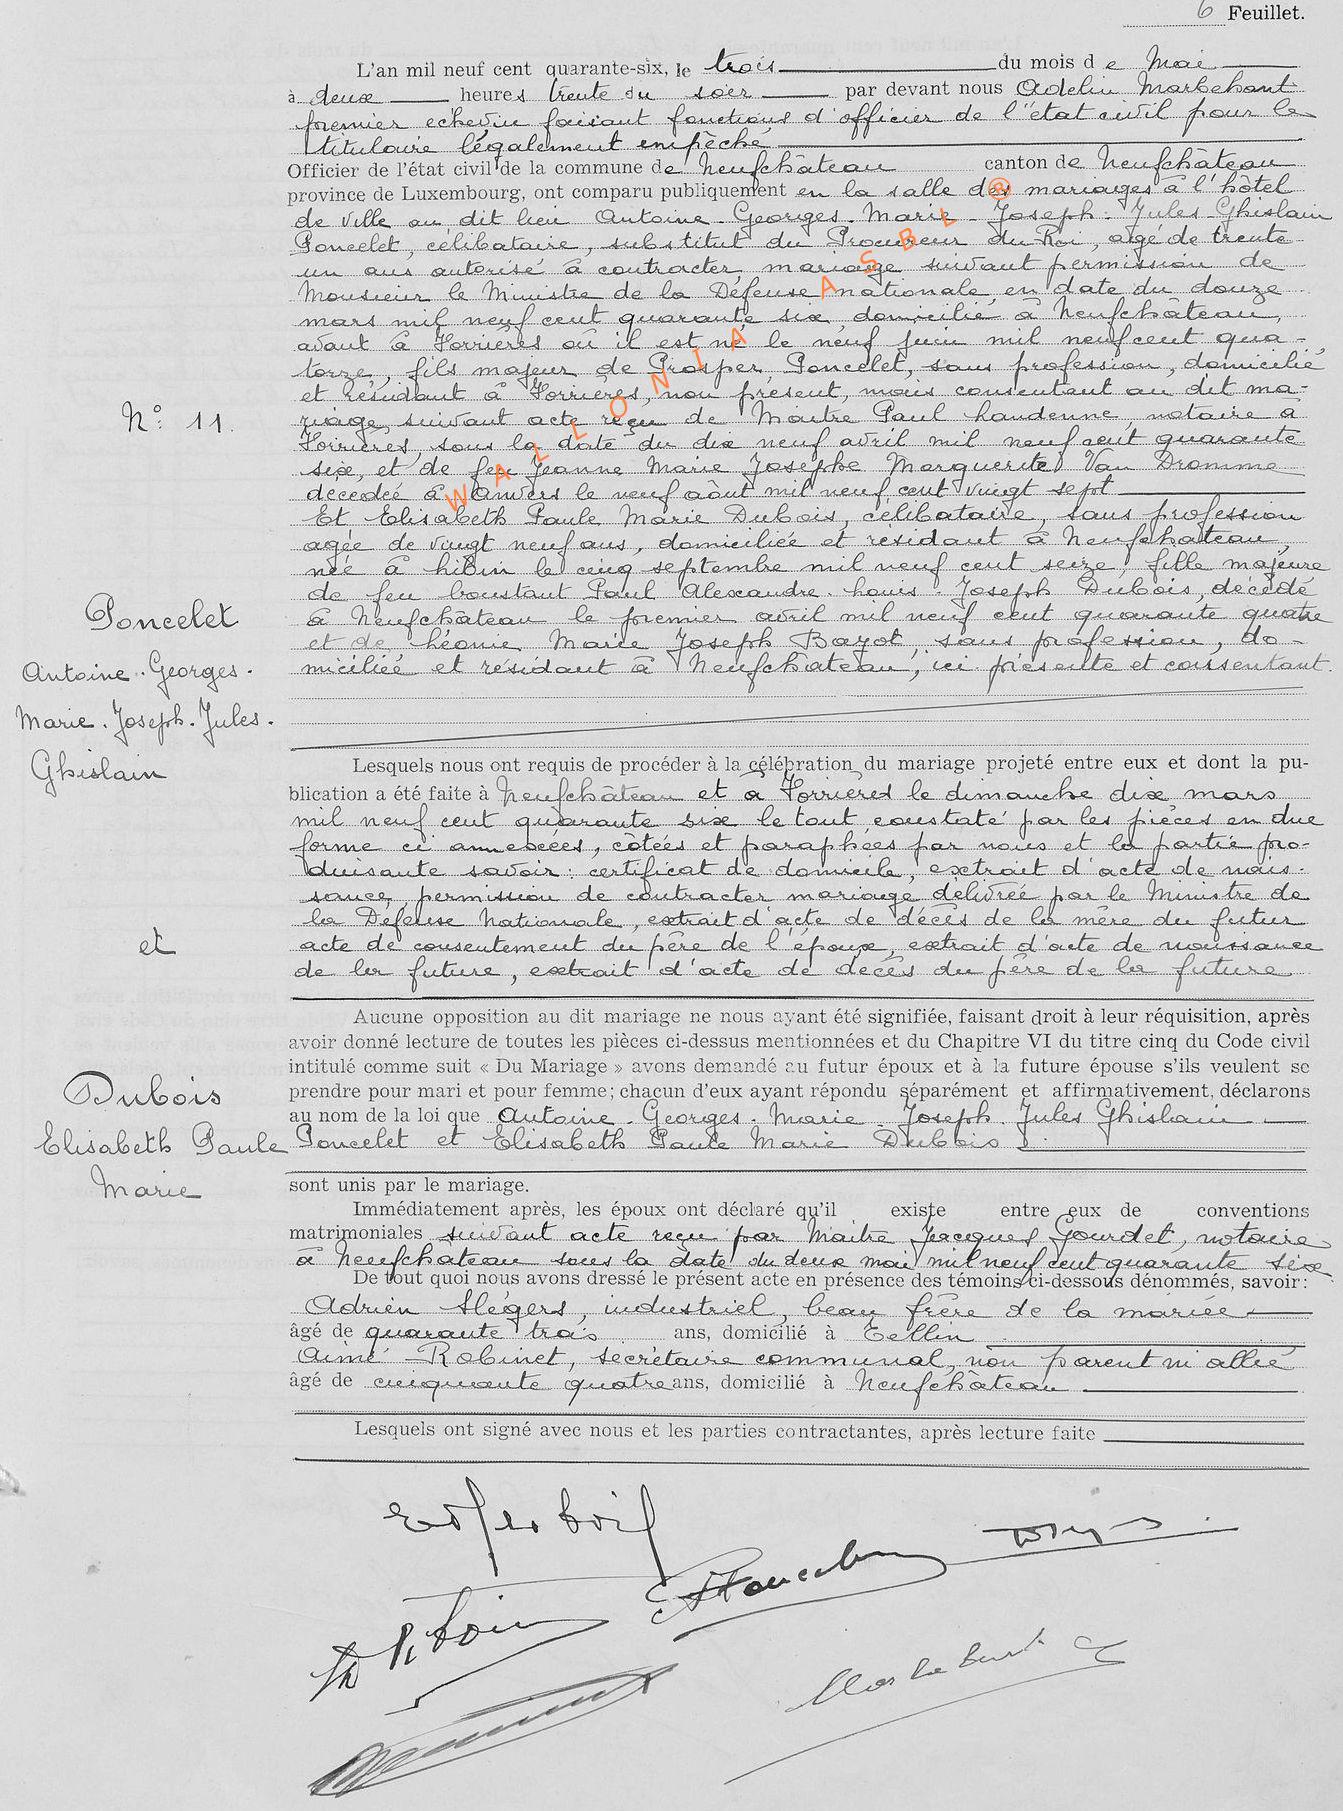 6 Feuillet.
L'an mil neuf cent quarante-six, le trois du mois de Mai
à deux heures trente du soir par devant nous Adelin Marbehant
premier echevin faisant fonctions d'officier de l'état civil pour le
titulaire légalement empêché
Officier de l'état civil de la commune de Neufchâteau canton de Neufchâteau
province de Luxembourg, ont comparu publiquement en la salle des mariages à l'hôtel
de ville au dit lieu Antoine-Georges-Marie-Joseph-Jules-Ghislain
Poncelet, célibataire, substitut du Procureur du Roi, agé de trente
un ans autorisé à contracter mariage suivant permission de
Monsieur le Ministre de la Défense nationale en date du douze
mars mil neuf cent quarante six, domicilié à Neufchâteau,
avant à Forrières où il est né le neuf juin mil neuf cent qua-
torze, fils majeur de Prosper Poncelet, sans profession, domicilié
et résidant à Forrières, non présent, mais consentant au dit ma-
riage, suivant acte reçu de Maître Paul Laudenne, notaire à
Forrières, sous la date du dix neuf avril mil neuf cent quarante
six, et de feu Jeanne Marie Josèphe Marguerite Van Dromme
décédée à Anvers le neuf août mil neuf cent vingt sept
Et Elisabeth Paule Marie Dubois, célibataire, sans profession
agée de vingt neuf ans, domiciliée et résidant à Neufchâteau,
née à Libin le cinq septembre mil neuf cent seize, fille majeure
de feu Constant Paul Alexandre-Louis-Joseph Dubois, décédé
à Neufchâteau le premier avril mil neuf cent quarante quatre
et de Léonie Marie Joseph Bazot, sans profession, do-
miciliée et résidant à Neufchâteau, ici présente et consentant.
N° 11.
Poncelet
Antoine-Georges-
Marie-Joseph-Jules-
Ghislain
et
Dubois
Elisabeth Paule
Marie
Lesquels nous ont requis de procéder à la célébration du mariage projeté entre eux et dont la pu-
blication a été faite à Neufchâteau et à Forrières le dimanche dix mars
mil neuf cent quarante six le tout constaté par les pièces en due
forme ci annexées, côtées et paraphées par nous et la partie pro-
duisante savoir: certificat de domicile, extrait d'acte de nais-
sance, permission de contracter mariage délivrée par le Ministre de
la Défense Nationale, extrait d'acte de décès de la mère du futur
acte de consentement du père de l'époux, extrait d'acte de naissance
de la future, extrait d'acte de décès du père de la future
Aucune opposition au dit mariage ne nous ayant été signifiée, faisant droit à leur réquisition, après
avoir donné lecture de toutes les pièces ci-dessus mentionnées et du Chapitre VI du titre cinq du Code civil
intitulé comme suit « Du Mariage » avons demandé au futur époux et à la future épouse s'ils veulent se
prendre pour mari et pour femme; chacun d'eux ayant répondu séparément et affirmativement, déclarons
au nom de la loi que Antoine-Georges-Marie-Joseph-Jules Ghislain
Poncelet et Elisabeth Paule Marie Dubois
sont unis par le mariage.
Immédiatement après, les époux ont déclaré qu'il existe entre eux de conventions
matrimoniales suivant acte reçu par Maître Jacques Gourdet, notaire
à Neufchateau sous la date du deux mai mil neuf cent quarante six
De tout quoi nous avons dressé le présent acte en présence des témoins ci-dessous dénommés, savoir:
Adrien Slégers, industriel, beau frère de la mariée
âgé de quarante trois ans, domicilié à Tellin
Aimé Robinet, secrétaire communal, non parent ni allié
âgé de cinquante quatre ans, domicilié à Neufchâteau
Lesquels ont signé avec nous et les parties contractantes, après lecture faite
WALLONIA ASBL ®